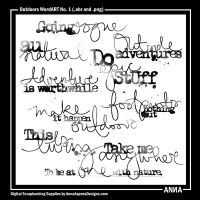 Outdoors WordART No. 1 (.abr and .png)
Going rogue
all natural
Outside adventures
Do Epic Stuff
Adventure is worthwhile
make it happen
footprints
nothing but
outdoors
This
living
Take me anywhere
To be at one with nature.
Digital Scrapbooking Supplies by AnnaAspnesDesigns.com
ANNA